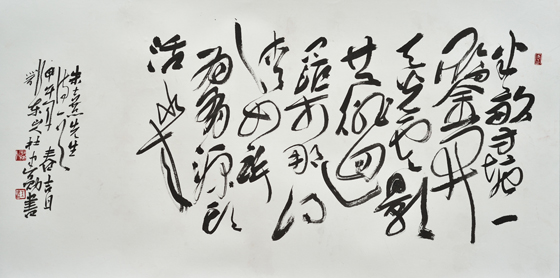 半畝方塘一
鑑開
天光雲影
共徘徊
問渠那得
清如許
為有源頭
活水來
朱熹先生
甲午年春吉日
書